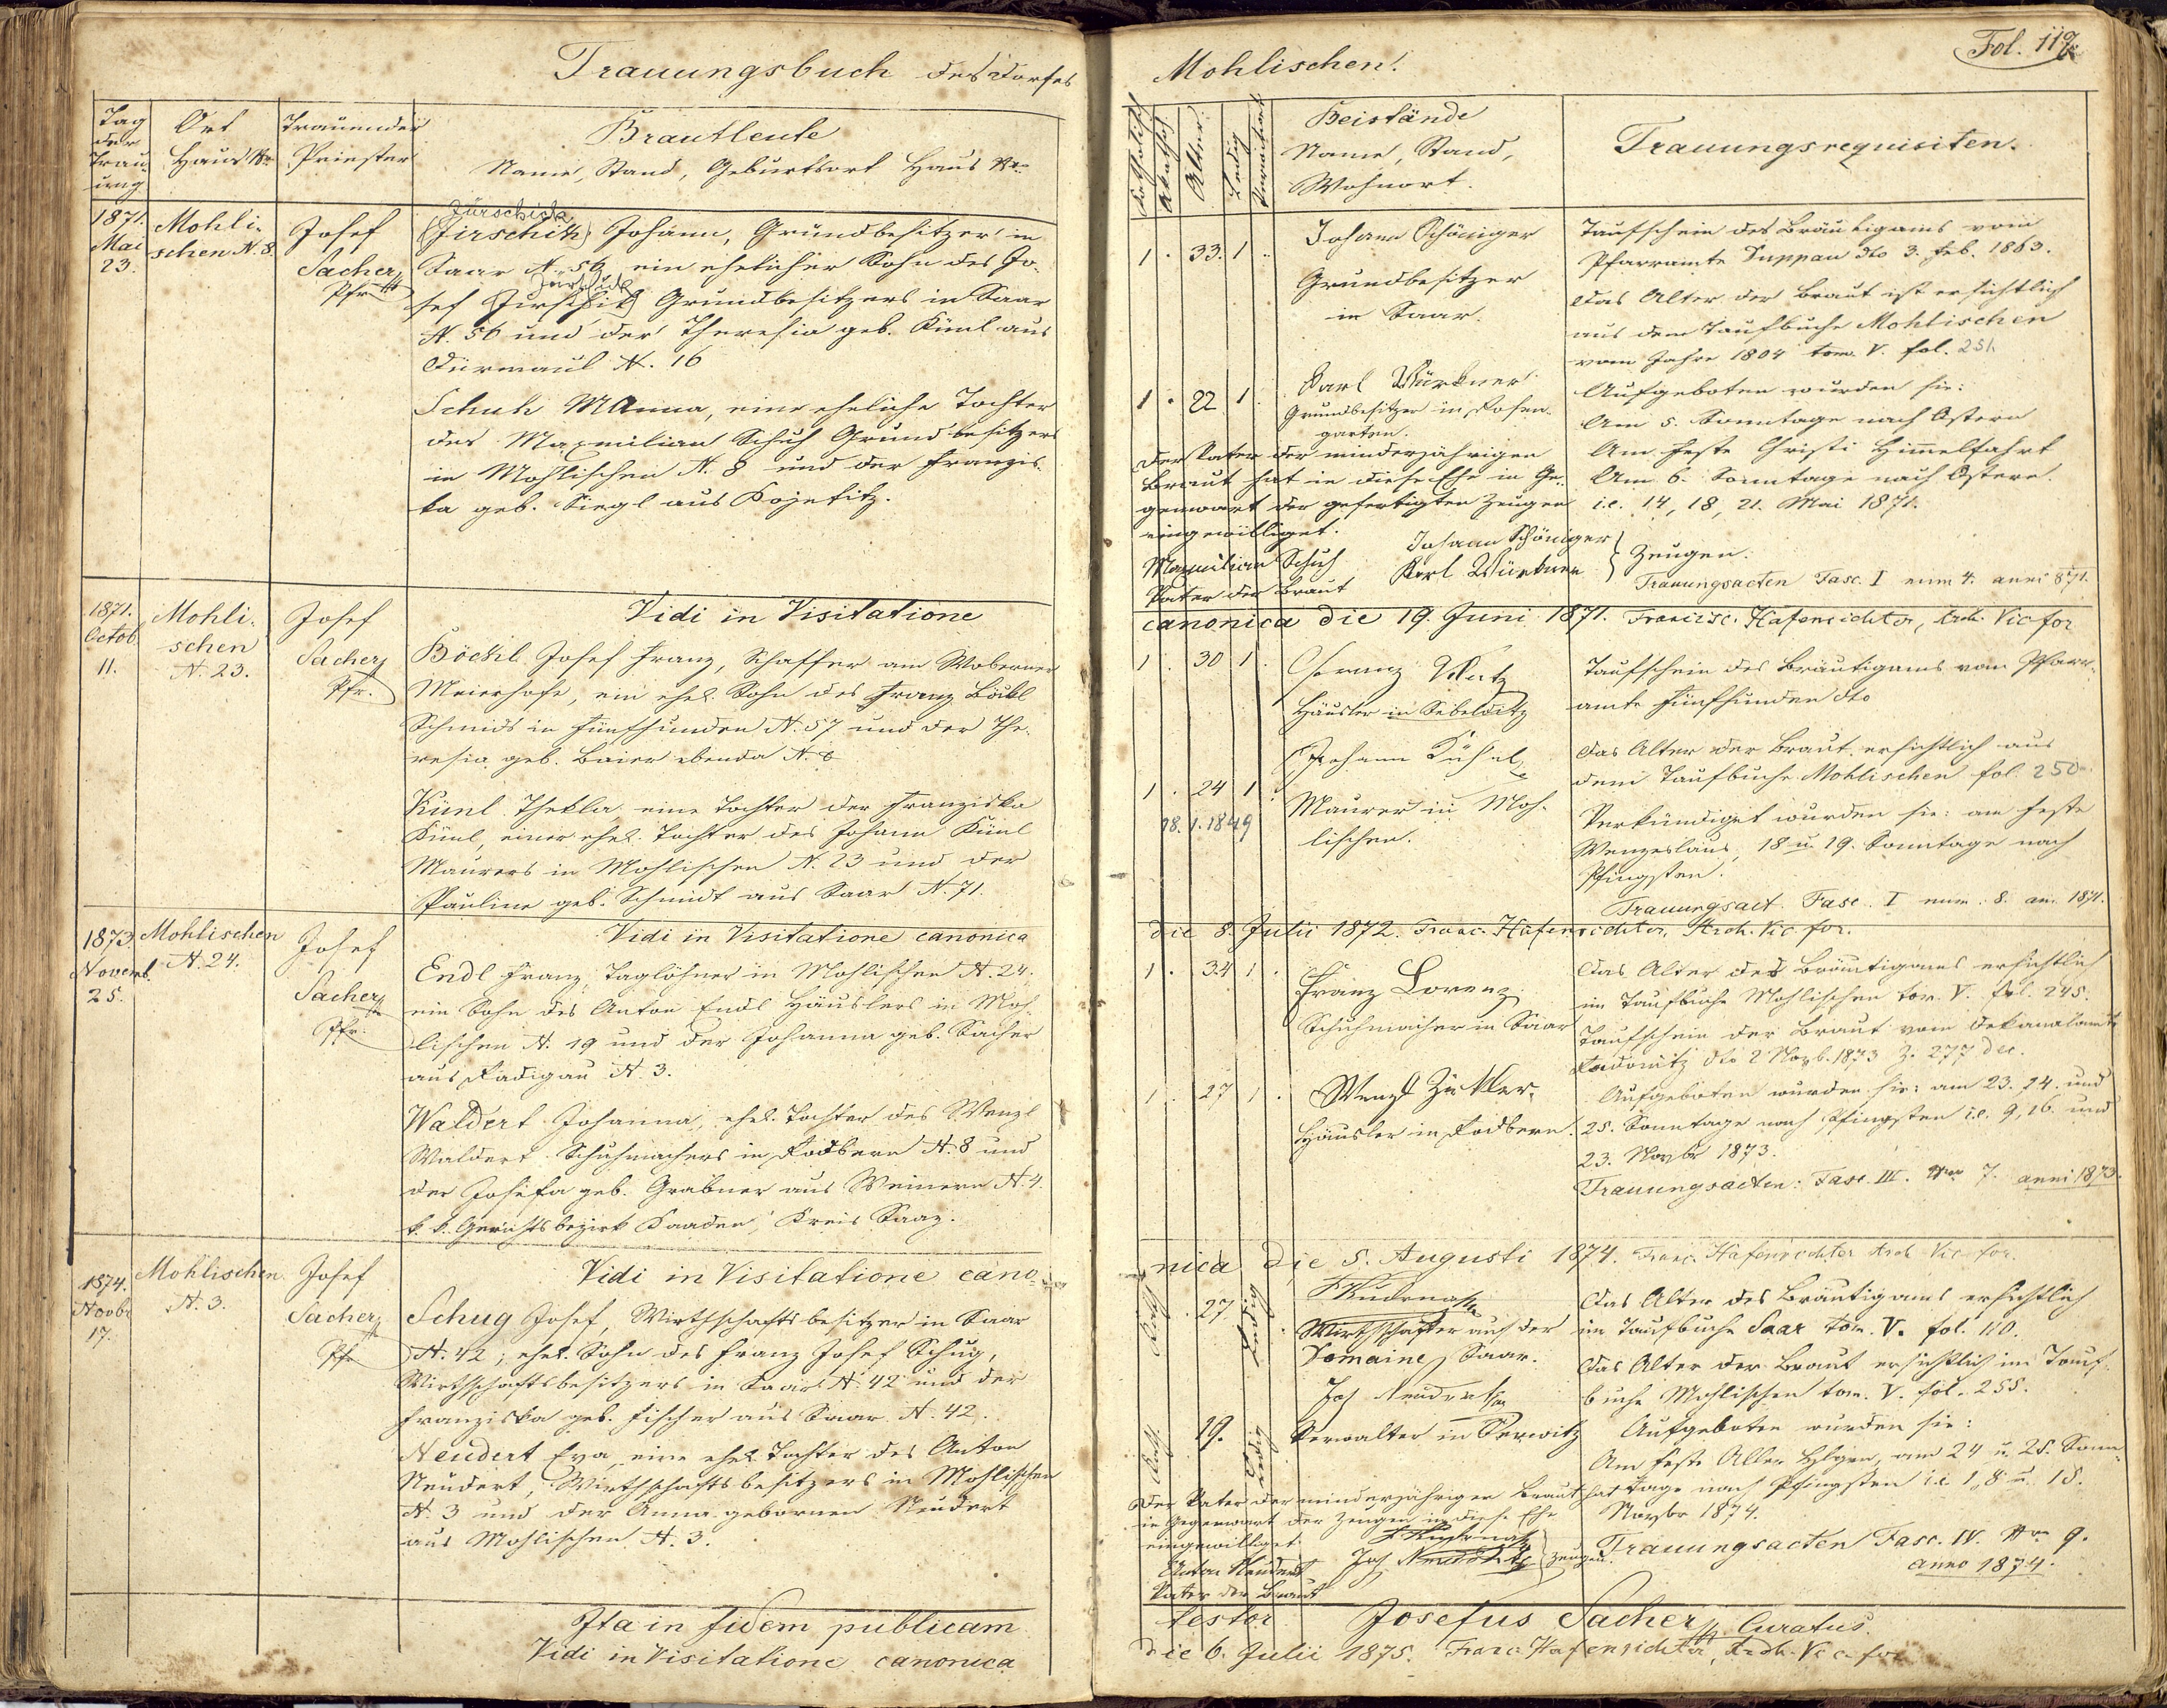 Trauungsbuch des Dorfes
Tag der Trau ung
Ort Haus Nr.
Trauender Priester
Brautleute
Name, Stand, Geburtsort Haus Nr.
1871. Mai 23.
Mohli-
schen N. 8.
Josef
Sacher
Pfr.
Jürschick
(Jirschik) Johann, Grundbesitzer in
Saar N. 56 ein ehelicher Sohn des Jo-
sef Grundbesitzers in Saar
N. 56 und der Theresia geb. Künl aus
Dürmaul N. 16
Schuh M Anna, eine eheliche Tochter
des Maxmilian Schuh Grundbesitzers
in Mohlischen N. 8 und der Franzis-
ka geb. Siegl aus Kojetitz.
1871. Octob. 11.
Mohli-
schen
N. 23.
Josef
Sacher
Pfr.
Vidi in Visitatione
Böckl Josef Franz, Schaffer am Woberner
Meierhofe, ein ehel. Sohn des Franz Böckl
Schmids in Fünfhunden N. 57 und der The-
resia geb. Baier ebenda N. 6
Künl Thekla eine Tochter der Franziska
Künl, einer ehel. Tochter des Johann Künl
Maurers in Mohlischen N. 23 und der
Pauline geb. Schmidt aus Saar N. 71.
1873. Novemb. 25.
Mohlischen
N. 24.
Josef
Sacher
Pfr.
Vidi in Visitatione canonica
Endl Franz, Taglöhner in Mohlischen N. 24.
ein Sohn des Anton Endl Häuslers in Moh-
lischen N. 19 und der Johanna geb. Sacher
aus Radigau N. 3.
Waldert Johanna, ehel. Tochter des Wenzl
Waldert Schuhmachers in Rödbern N. 8 und
der Josefa geb. Grabner aus Weinern N. 4.
k. k. Gerichtsbezirk Kaaden, Kreis Saaz.
1874. Novbr 17.
Mohlischen
N. 3.
Josef
Sacher
Pfr
Vidi in Visitatione cano-
Schug Josef, Wirthschaftsbesitzer in Saar
N. 42; ehel. Sohn des Franz Josef Schug,
Wirthschaftsbesitzers in Saar N. 42 und der
Franziska geb. Fischer aus Saar N. 42.
Neudert Eva eine ehel. Tochter des Anton
Neudert, Wirthschaftsbesitzers in Mohlischen
N. 3 und der Anna gebornen Neudert
aus Mohlischen N. 3.
Ita in fidem publicam
Vidi in Visitatione canonica
Fol. 119
Mohlischen.
Katholisch
Alter
Ledig
Verwitwet
Beistände
Name, Stand,
Wohnort.
Trauungsrequisiten.
1 . 33. 1 .
Johann Schöniger
Grundbesitzer
in Saar.
1 . 22 1 .
Karl Würkner
Grundbesitzer in Rosen-
garten.
Der Vater der minderjährigen
Braut hat in diese Ehe in Ge-
genwart der gefertigten Zeugen
eingewilliget.
Maxmilian Schuh
Vater der Braut
Johann Schöniger
Karl Würkner
Zeugen.
Taufschein des Bräutigams vom
Pfarramte Duppau dto 3. Feb. 1863.
Das Alter der Braut ist ersichtlich
aus dem Taufbuche Mohlischen
vom Jahre 1804 tom. V. fol. 251.
Aufgeboten wurden sie:
Am 5. Sonntage nach Ostern
Am Feste Christi Himmelfahrt
Am 6. Sonntage nach Ostern.
i.e. 14, 18, 21. Mai 1871.
Trauungsacten Fasc. I num 4. anni 871.
canonica die 19. Juni 1871. Francisc. Hafenrichter, Arch. Vic for
1 . 30 1 .
Franz
Häusler in
Johann Kühnl
Maurer in Moh-
lischen.
1 . 24 1 .
18. 1. 1849
Taufschein des Bräutigams vom Pfarr-
amte Fünfhunden dto
Das Alter der Braut ersichtlich aus
dem Taufbuche Mohlischen fol. 250
Verkündiget wurden sie: am Feste
Wenzeslaus, 18 u. 19. Sonntage nach
Pfingsten.
Trauungsact. Fasc. I num. 8. an. 1871.
die 8. Julii 1872. Franc. Hafenrichter, Arch. Vic. for.
1 . 34 1 .
Franz Lorenz
Schuhmacher in Saar
1 . 27 1 .
Wenzl
Häusler in Rödbern.
Das Alter des Bräutigams ersichtlich
im Taufbuche Mohlischen tom. V. fol. 245.
Taufschein der Braut vom Dekanalamte
Radonitz dto 2 Novb. 1873 Z. 277 dec.
Aufgeboten wurden sie: am 23. 24. und
25. Sonntage nach Pfingsten i.e. 9, 16. und
23. Novbr 1873.
Trauungsacten: Fasc. III. Nro 7. anni 1873.
nica die 5. Augusti 1874. Franc. Hafenrichter Arch Vic for.
Kath. 27. Ledig
Wirthschafter auf der
Domaine Saar.
Kath. 19. Ledig
Verwalter in
Der Vater der minderjährigen Braut hat
in Gegenwart der Zeugen in diese Ehe
eingewilliget
Anton Neudert
Vater der Braut
Zeugen.
Das Alter des Bräutigams ersichtlich
im Taufbuche Saar tom. V. fol. 110.
Das Alter der Braut ersichtlich im Tauf-
buche Mohlischen tom. V. fol. 255.
Aufgeboten wurden sie:
Am Feste Aller Hlgen, am 24 u. 25. Sonn-
tage nach Pfingsten i.e 1, 8 u. 15.
Novbr 1874.
Trauungsacten Fasc. IV. Nro 9.
anno 1874.
testor Josefus Sacher, Curatus.
die 6. Julii 1875. Franc. Hafenrichter, Arch. Vic. for